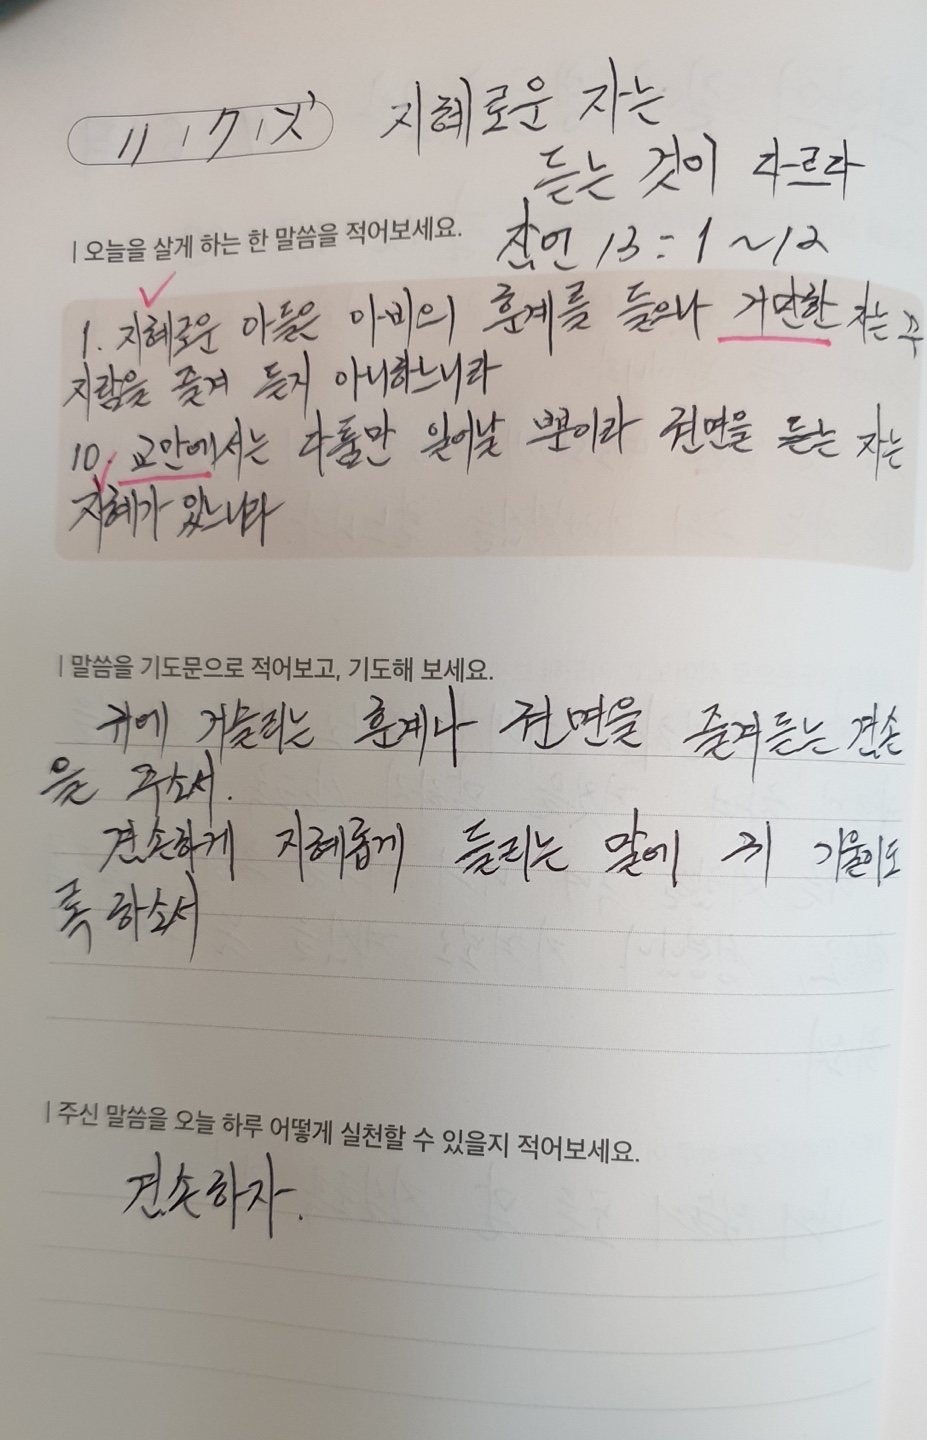 11, 7, 오
지혜로운 자는
듣는 것이 다르다
| 오늘을 살게 하는 한 말씀을 적어보세요.
잠언 13:1~12
1. 지혜로운 아들은 아비의 훈계를 들으나 거만한 자는 꾸
지람을 즐겨 듣지 아니하느니라
10. 교만에서는 다툼만 일어날 뿐이라 권면을 듣는 자는
지혜가 있느니라
| 말씀을 기도문으로 적어보고, 기도해 보세요.
귀에 거슬리는 훈계나 권면을 즐겨 듣는 겸손
을 주소서.
겸손하게 지혜롭게 들리는 말에 귀 기울이도
록 하소서
| 주신 말씀을 오늘 하루 어떻게 실천할 수 있을지 적어보세요.
겸손하자.